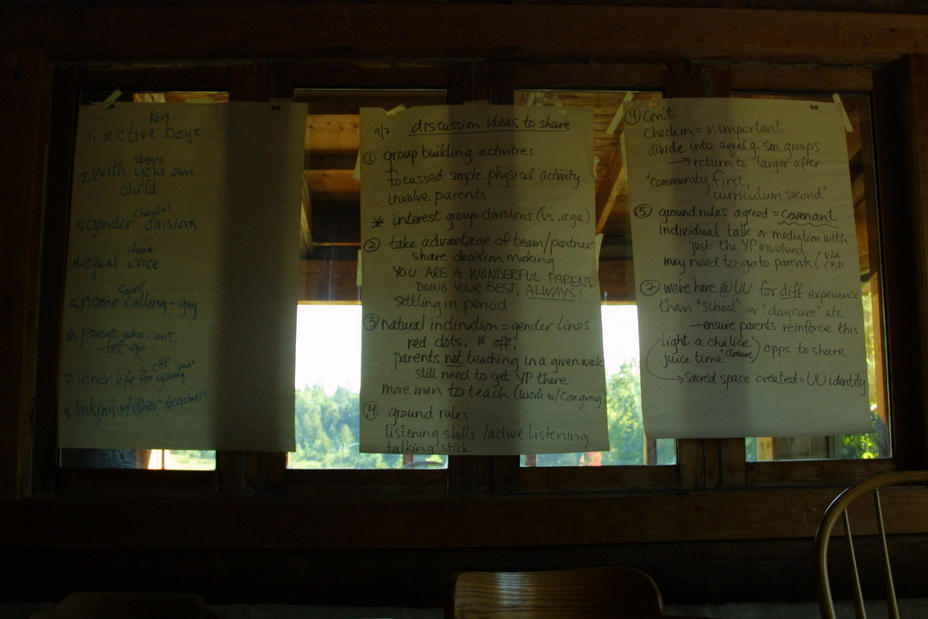 King
1. active boys
Peggy
2. with your own
child
3. gender divisions
Anne
4. equal voice
5. name calling - gay
6. parents who can't
let go
7. inner life for young
8. linking w/other teachers
9/7 discussion ideas to share
① group building activities
focussed simple physical activity
involve parents
* interest group divisions (vs. age)
② take advantage of team/partner
share decision making
YOU ARE A WONDERFUL PARENT
DOING YOUR BEST, ALWAYS!
settling in period
③ natural inclination = gender lines
red dots, # off,
parents not teaching in a given week
still need to get YP there
more men to teach (work w/ congreg)
④ ground rules
listening skills / active listening
talking stick
④ con't
check in = v. important
divide into equal g. sm. groups
→ return to larger after
"community first,
curriculum second"
⑤ ground rules agreed = covenant
individual talk or mediation with
just the YP involved
may need to go to parents (via
⑦ we're here @ UU for diff experience
than "school" or "daycare" etc
— ensure parents reinforce this
light a chalice
juice time "closure" opps. to share
→ Sacred space created = UU identity